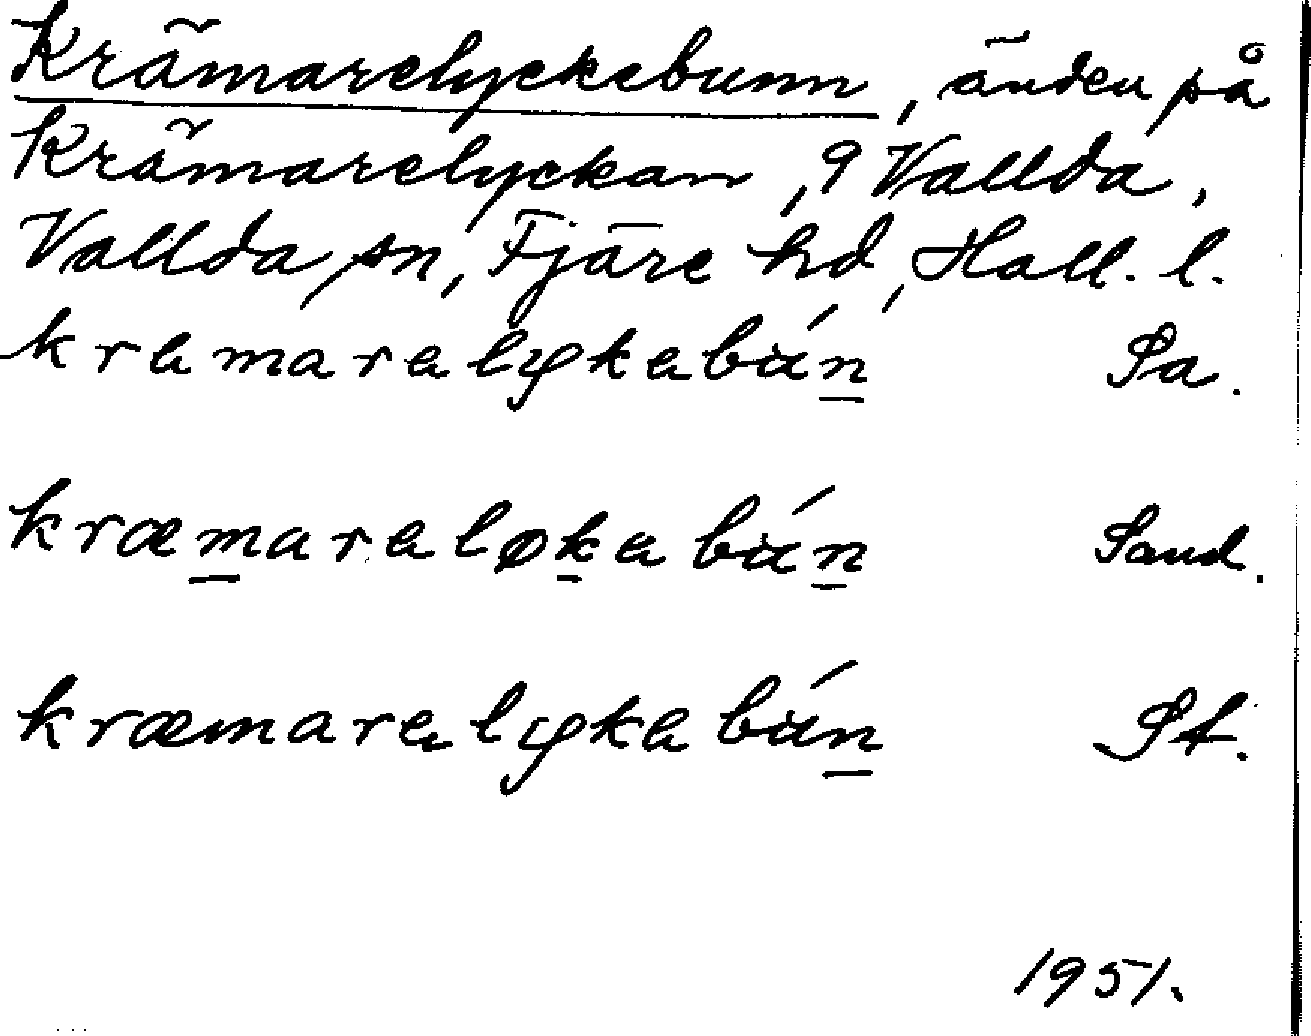 Krämarelyckebunn, änden på
Krämarelyckan, 9 Vallda,
Vallda sn, Fjäre hd, Hall. l.
kramaralykabún Sa.
kræmaraløkabún Sand.
kræmaralykabún St.
1951.